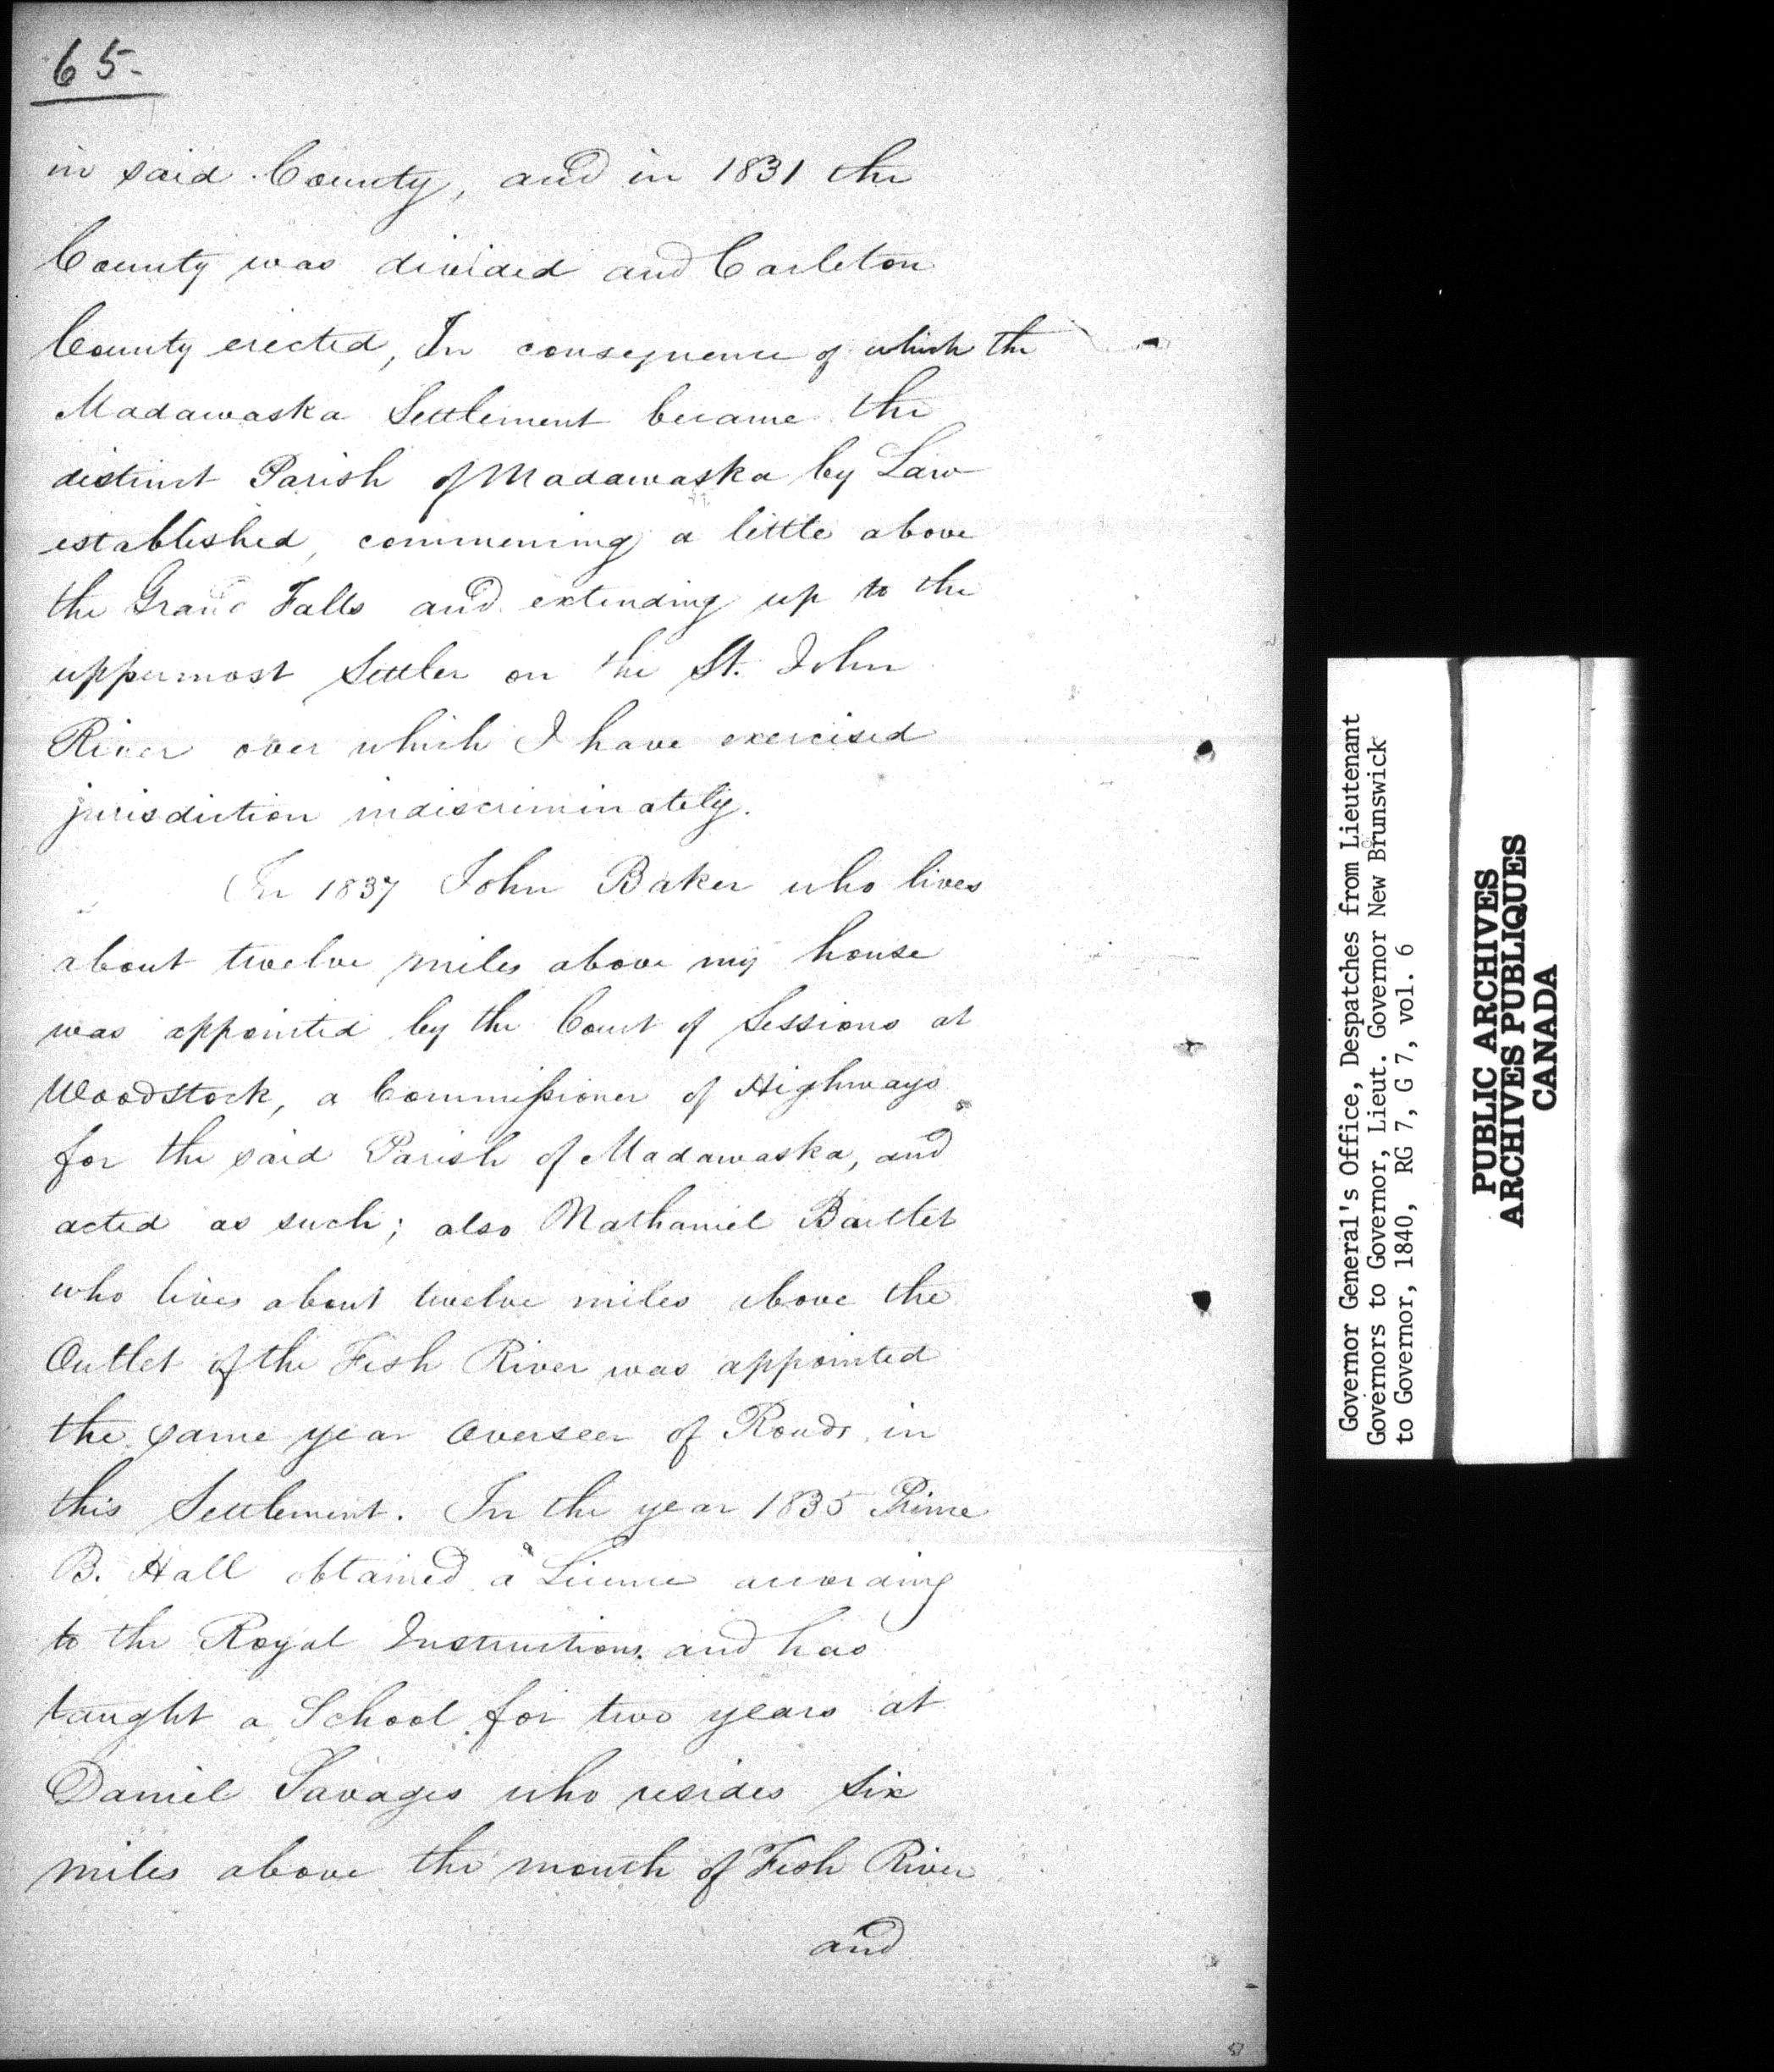 65-
in said County, and in 1831 the
County was divided and Carleton
County erected, In consequence of which the
Madawaska Settlement became the
distinct Parish of Madawaska by Law
established, commencing a little above
the Grand Falls and extending up to the
uppermost Settler on the St. John
River over which I have exercised
jurisdiction indiscriminately.
In 1837 John Baker who lives
about twelve miles above my house
was appointed by the Court of Sessions at
Woodstock, a Commissioner of Highways
for the said Parish of Madawaska, and
acted as such; also Nathaniel Bartlet
who lives about twelve miles above the
Outlet of the Fish River was appointed
the same year Overseer of Roads in
this Settlement. In the year 1835 Prime
B. Hall obtained a Licence according
to the Royal Instructions and has
taught a School for two years at
Daniel Savages who resides six
miles above the mouth of Fish River
and
Governor General's Office, Despatches from Lieutenant
Governors to Governor, Lieut. Governor New Brunswick
to Governor, 1840, RG 7, G 7, vol. 6
PUBLIC ARCHIVES
ARCHIVES PUBLIQUES
CANADA